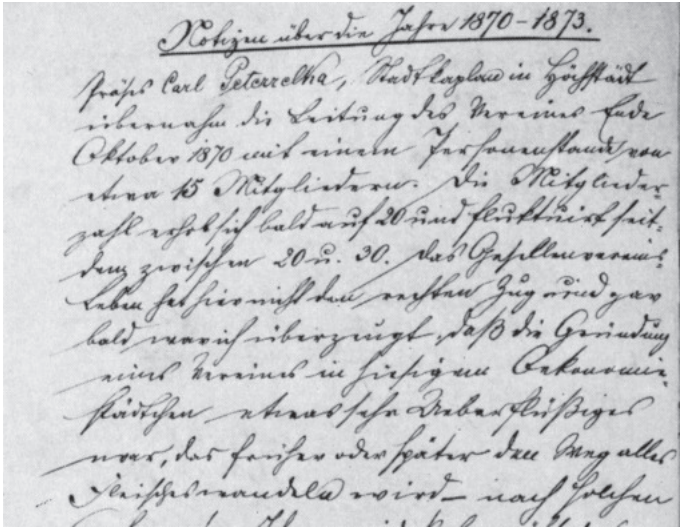 Notizen über die Jahre 1870-1873.
Präses Carl Peterzelka, Stadtkaplan in Höchstädt
übernahm die Leitung des Vereines Ende
Oktober 1870 mit einem Personenstande von
etwa 15 Mitgliedern. Die Mitglieder-
zahl erhob sich bald auf 20 und fluktuirt seit-
dem zwischen 20 u. 30. Das Gesellenvereins-
Leben hat hier nicht den rechten Zug und gar
bald war ich überzeugt, daß die Gründung
eines Vereines in hiesigem Oekonomie-
städtchen etwas sehr Ueberflüßiges
war, das früher oder später den Weg alles
Fleisches wandeln wird - nach solchen